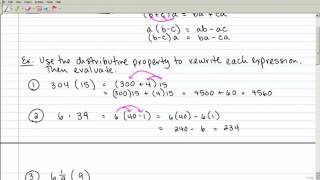 (b+c)a = ba + ca
a(b-c) = ab - ac
(b-c)a = ba - ca
Ex. Use the distributive property to rewrite each expression.
Then evaluate.
① 304 (15) = (300 + 4) 15
= (300)15 + (4)15 = 4500 + 60 = 4560
② 6 · 39 = 6 (40 - 1) = 6(40) - 6(1)
= 240 - 6 = 234
③ 6 1/9 (9)